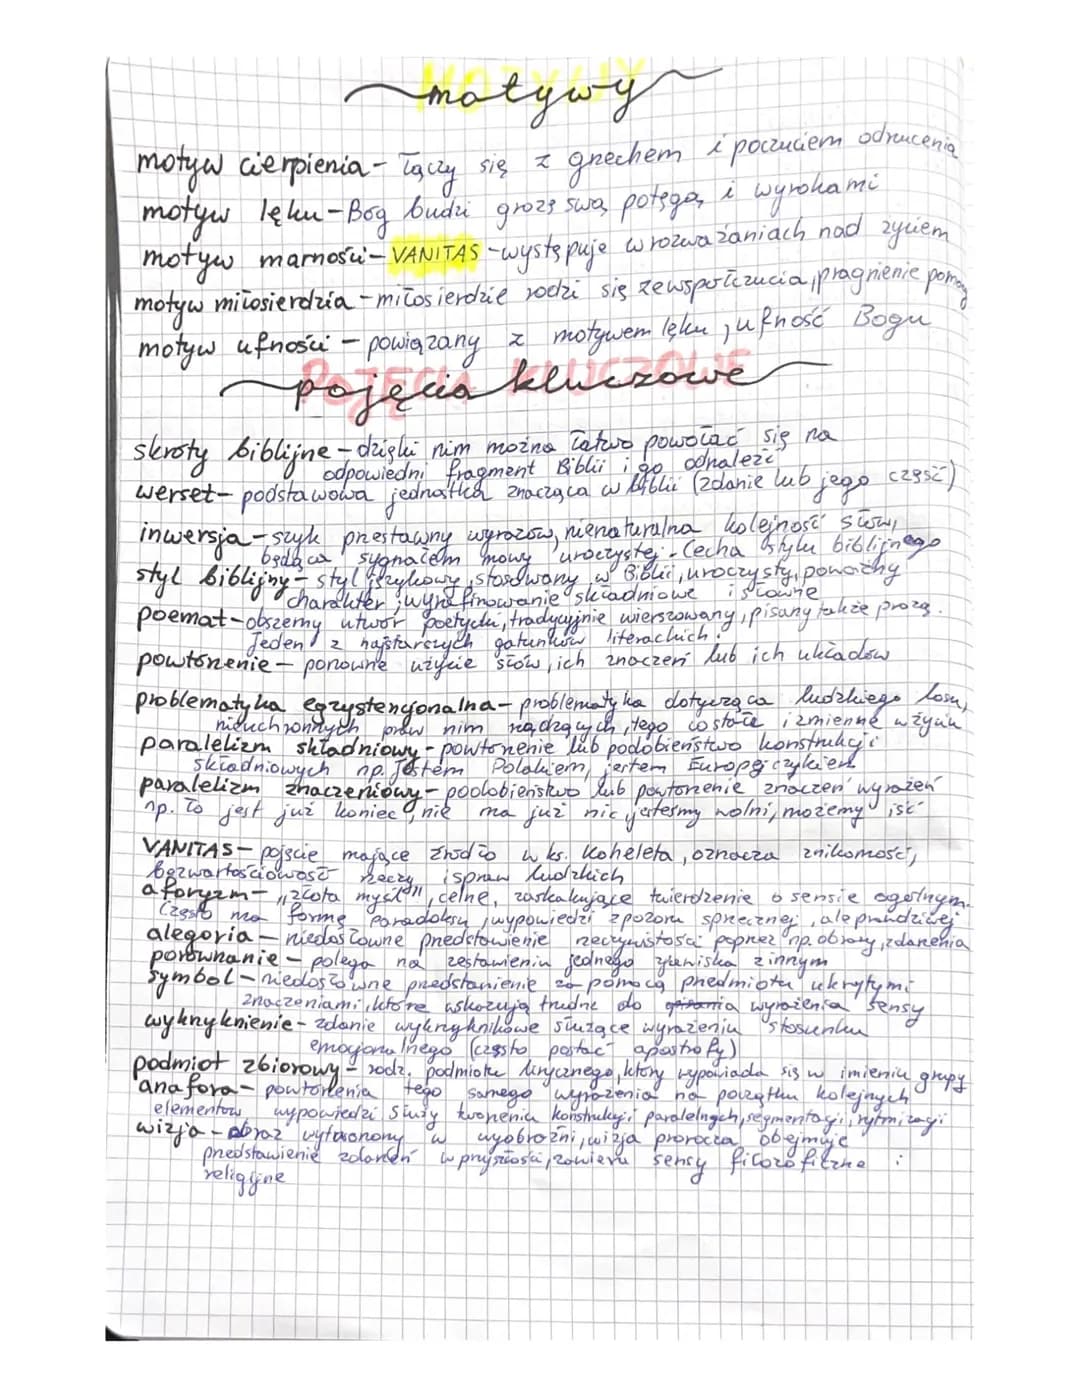 MOTYWY
motywy
motyw cierpienia - łączy się z grzechem i poczuciem odrzucenia
motyw lęku - Bóg budzi grozę swą potęgą i wyrokami
motyw marności - VANITAS - występuje w rozważaniach nad życiem
motyw miłosierdzia - miłosierdzie rodzi się ze współczucia, pragnienie pomocy
motyw ufności - powiązany z motywem lęku, ufność Bogu
POJĘCIA KLUCZOWE
pojęcia kluczowe
skróty biblijne - dzięki nim można łatwo powołać się na
odpowiedni fragment Biblii i go odnaleźć
werset - podstawowa jednostka znacząca w Biblii (zdanie lub jego część)
inwersja - szyk przestawny wyrazów, nienaturalna kolejność słów,
będąca sygnałem mowy uroczystej. Cecha stylu biblijnego
styl biblijny - styl językowy stosowany w Biblii, uroczysty, poważny
charakter; wyrafinowanie składniowe i słowne
poemat - obszerny utwór poetycki, tradycyjnie wierszowany, pisany także prozą.
Jeden z najstarszych gatunków literackich.
powtórzenie - ponowne użycie słów, ich znaczeń lub ich układów
problematyka egzystencjonalna - problematyka dotycząca ludzkiego losu,
nieuchronnych praw nim rządzących, tego co stałe i zmienne w życiu
paralelizm składniowy - powtórzenie lub podobieństwo konstrukcji
składniowych np. Jestem Polakiem, jestem Europejczykiem
paralelizm znaczeniowy - podobieństwo lub powtórzenie znaczeń wyrażeń
np. To jest już koniec, nie ma już nic, jesteśmy wolni, możemy iść
VANITAS - pojęcie mające źródło w ks. Koheleta, oznacza znikomość,
bezwartościowość rzeczy i spraw ludzkich
aforyzm - "złota myśl", celne, zaskakujące twierdzenie o sensie ogólnym.
Często ma formę paradoksu, wypowiedzi z pozoru sprzecznej, ale prawdziwej
alegoria - niedosłowne przedstowienie rzeczywistości poprzez np. obrazy, zdarzenia
porównanie - polega na zestawieniu jednego zjawiska z innym
symbol - niedosłowne przedstawienie za pomocą przedmiotu ukrytymi
znaczeniami, które wskazują trudne do wyrażenia sensy
wykrzyknienie - zdanie wykrzyknikowe służące wyrażeniu stosunku
emocjonalnego (często postać apostrofy)
podmiot zbiorowy - rodz. podmiotu lirycznego, który wypowiada się w imieniu grupy
anafora - powtórzenia tego samego wyrażenia na początku kolejnych
elementów wypowiedzi służy tworzeniu konstrukcji paralelnych, segmentacji, rytmizacji
wizja - obraz wytworzony w wyobraźni, wizja prorocza obejmuje
przedstawienie zdarzeń w przyszłości, zawiera sensy filozoficzne i
religijne